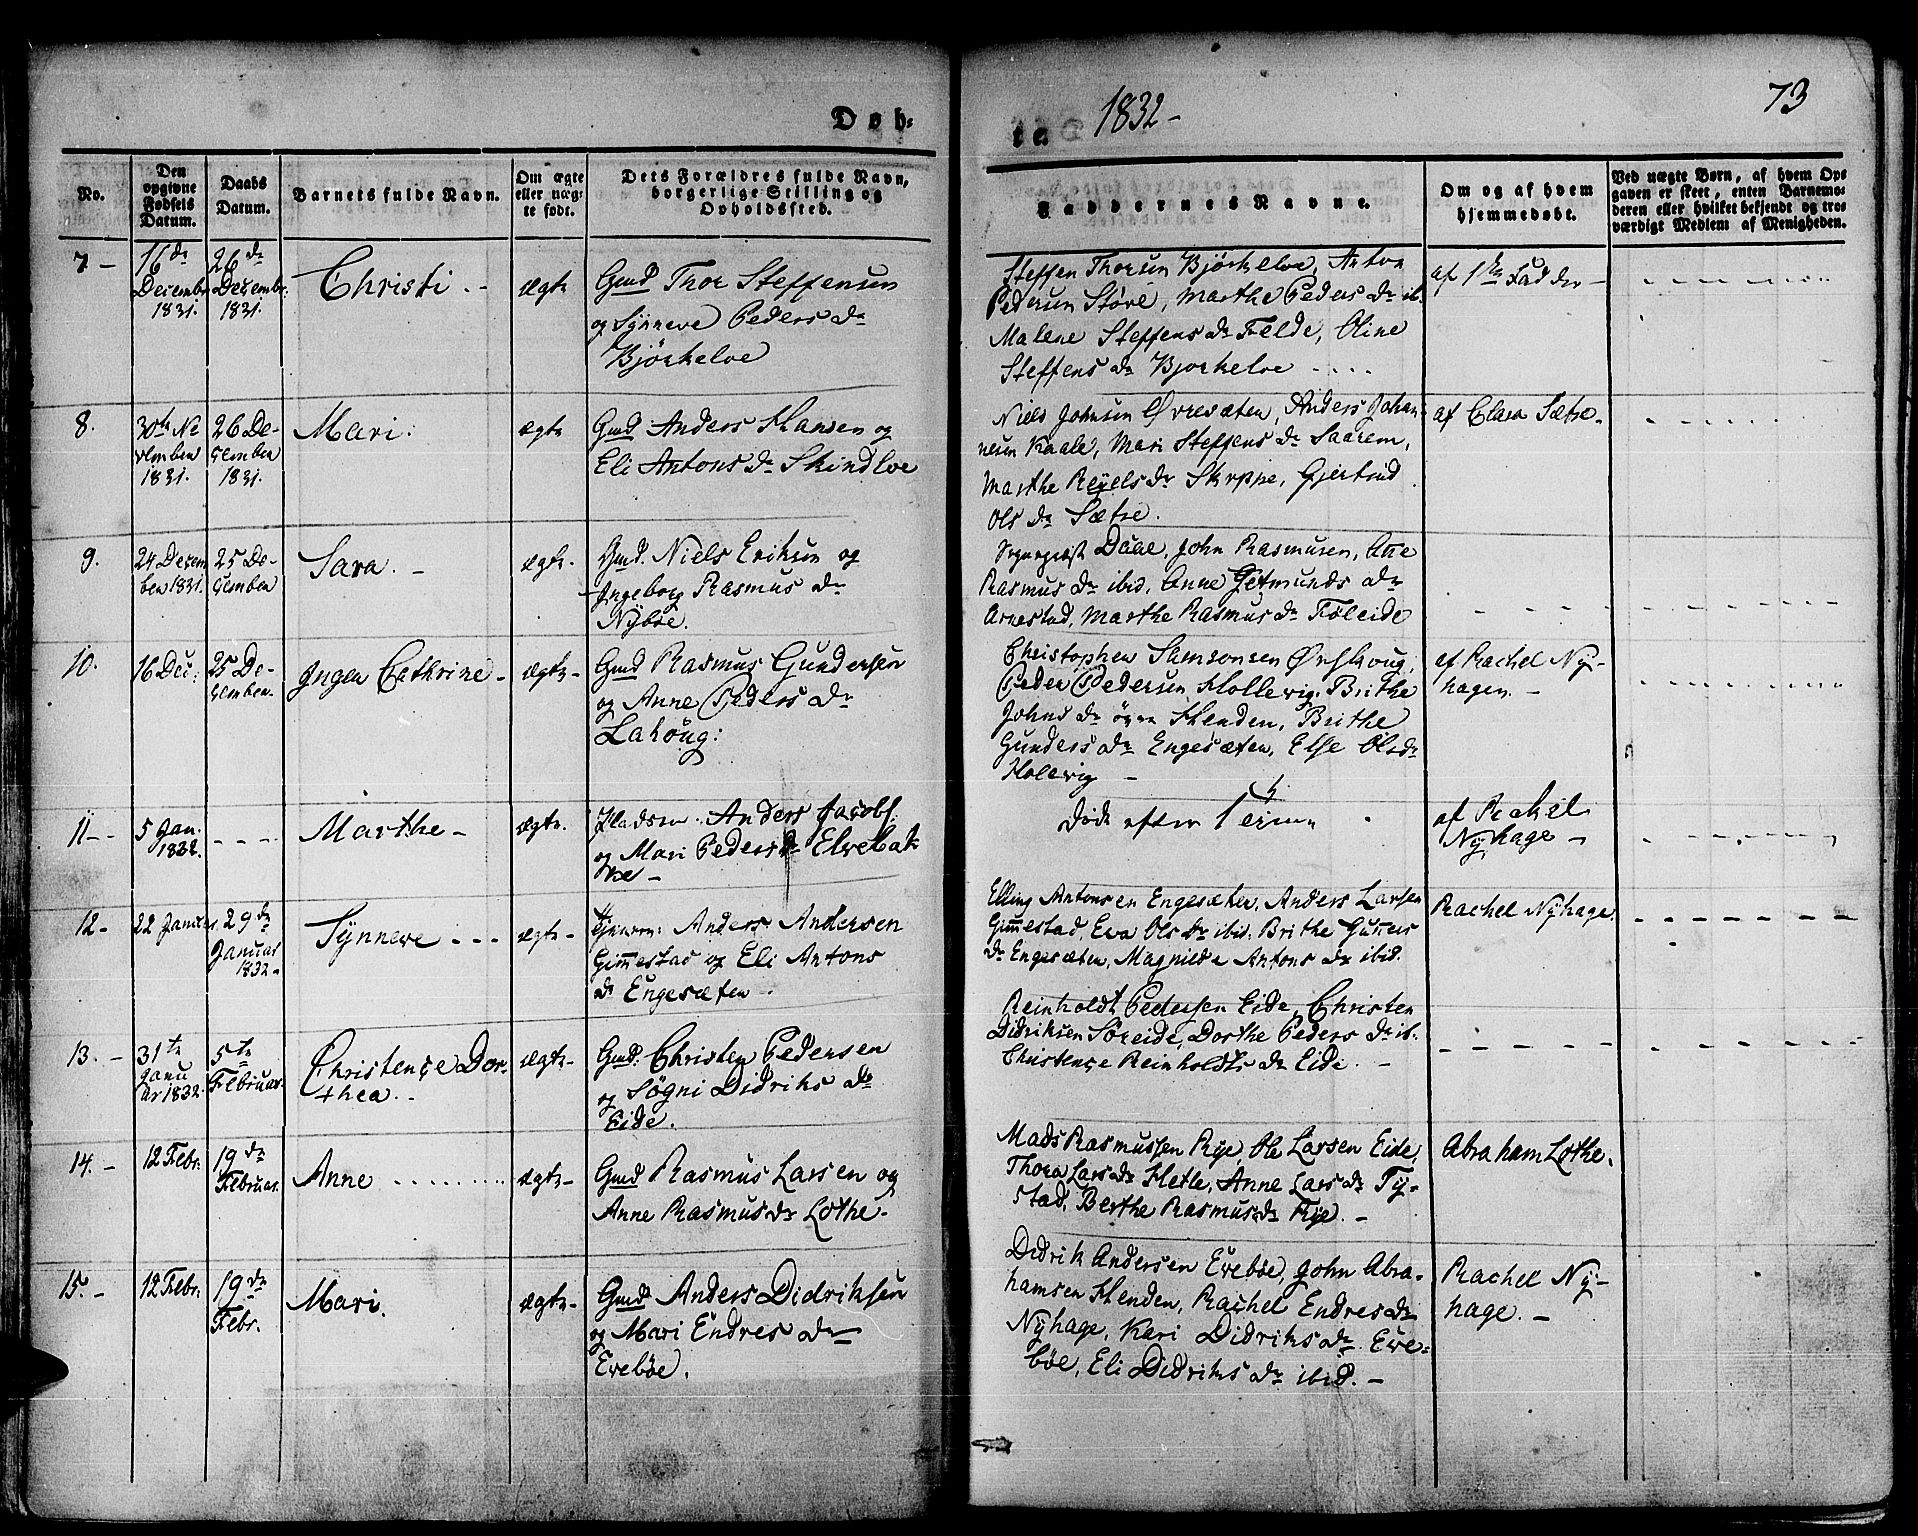 Døb-
te
1832-
73
No.
Den opgivne Fødsels Datum.
Daabs Datum.
Barnets fulde Navn.
Om ægte eller uægte født.
Dets Forældres fulde Navn, borgerlige Stilling og Opholdssted.
Faddernes Navne.
Om og af hvem hjemmedøbt.
Ved uægte Børn, af hvem Opgaven er skeet, enten Barnemoderen eller hvilket bekjendt og troværdigt Medlem af Menigheden.
7 -
16de
Decembr
1831.
26de
Decembr.
1831.
Christi
ægte
Gmd Thor Steffensen
og Synneve Peders Dr
Bjørkelve
Steffen Thorsen Bjørkelve, Anton
Pedersen Støve, Marthe Peders Dr ib.
Malene Steffens Dr Felde, Oline
Steffens Dr Bjørkelve
af 1te Fadder
8.
30te No
vember
1831.
26 De-
cember
1831.
Mari
ægte
Gmd Anders Hansen og
Eli Antons Dr Skindlve
Niels Johnsen Øvresæten, Anders Johan-
nesen Kaale, Mari Steffens Dr Saarem,
Marthe Rejels Dr Skrppe, Gjertrud
Ols Dr Sætre.
af Clara Sætre.
9.
24 Decem
ber 1831.
25 De-
cember
Sara. -
ægte-
Gmd. Niels Eriksen og
Ingeborg Rasmus Dr
Nybøe.
Daae, John Rasmusen, Ane
Rasmus Dr ibid, Anne Getmunds Dr
Arnestad, Marthe Rasmus Dr Føleide
10.
16 Dec:
25 De-
cember.
Inger Cathrine -
ægte-
Gmd Rasmus Gundersen
og Anne Peders Dr
Lahoug:
Christopher Samsonsen Ørshoug,
Peder Pedersen Hollevig, Brithe
Johns Dr øvre Henden, Brithe
Gunders Dr Engesæten, Else Olsdr
Holevig -
af Rachel Ny-
hagen. -
11 -
5 Jan.
1832.
Marthe -
ægte.
Pladsm. Anders Jacobs.
og Mari Peders Dr Elvebak
ke -
Døde efter 1
af Rachel
Nyhage -
12 -
22 Januar.
29de
Januar
1832 -
Synneve
ægte -
Anders Andersen
Gimmestad og Eli Antons
Dr Engesæten.
Elling Antonsen Engesæter, Anders Larsen
Gimmestad, Eva Ols Dr ibid. Brithe Gunners
Dr Engesæten, Magnilde Antons Dr ibid.
Rachel Nyhage.
13. -
31te
Janu
ar 1832.
5te
Februar.
Christence Dor-
thea.
ægte-
Gmd. Christen Pedersen
og Søgni Didriks Dr
Eide.
Reinholdt Pedersen Eide, Christen
Didriksen Søreide, Dorthe Peders Dr ib.
Christence Reinholdts Dr Eide. -
14. -
12 Febr.
19de
Februar.
Anne
ægte-
Gmd Rasmus Larsen og
Anne Rasmus Dr Lothe.
Mads Rasmussen Rye, Ole Larsen Eide,
Thora Lars Dr Hetle, Anne Lars Dr Ty-
stad, Berthe Rasmus Dr Rye. -
Abraham Lothe.
15. -
12 Febr.
19de
Febr.
Mari.
ægte-
Gmd Anders Didriksen
og Mari Endres Dr
Evebøe.
Didrik Andersen Evebøe, John Abra-
hamsen Henden, Rachel Endres Dr
Nyhage, Kari Didriks Dr Eve-
bøe, Eli Didriks Dr ibid. -
Rachel Ny-
hage. -